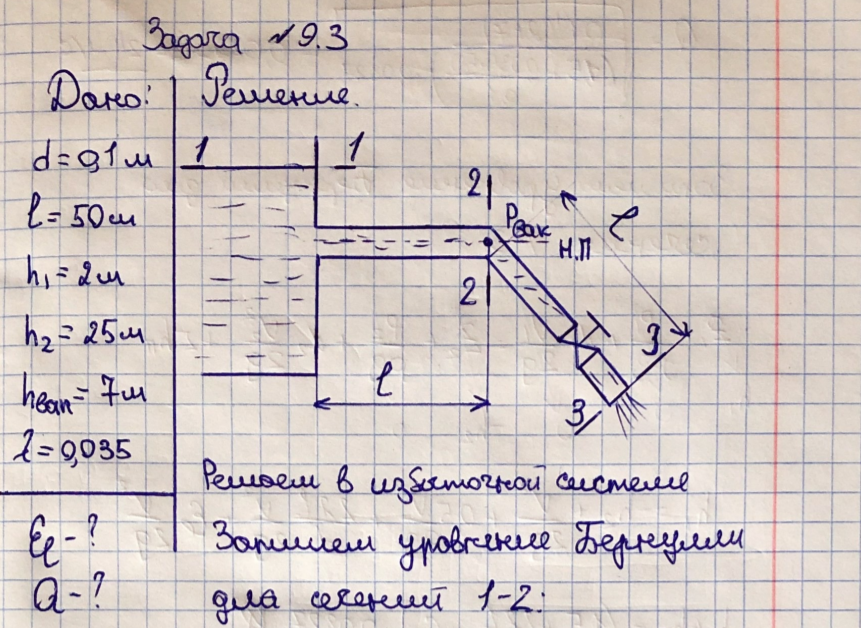 Задача №9.3
Дано:
d = 0,1 м
l = 50 м
h₁ = 2 м
h₂ = 25 м
hвак = 7 м
λ = 0,035
ξ - ?
Q - ?
Решение.
1 1
2
Pвак
Н.П
l
2
3
l
3
Решаем в избыточной системе
Запишем уровнение Бернулли
для сечений 1-2: